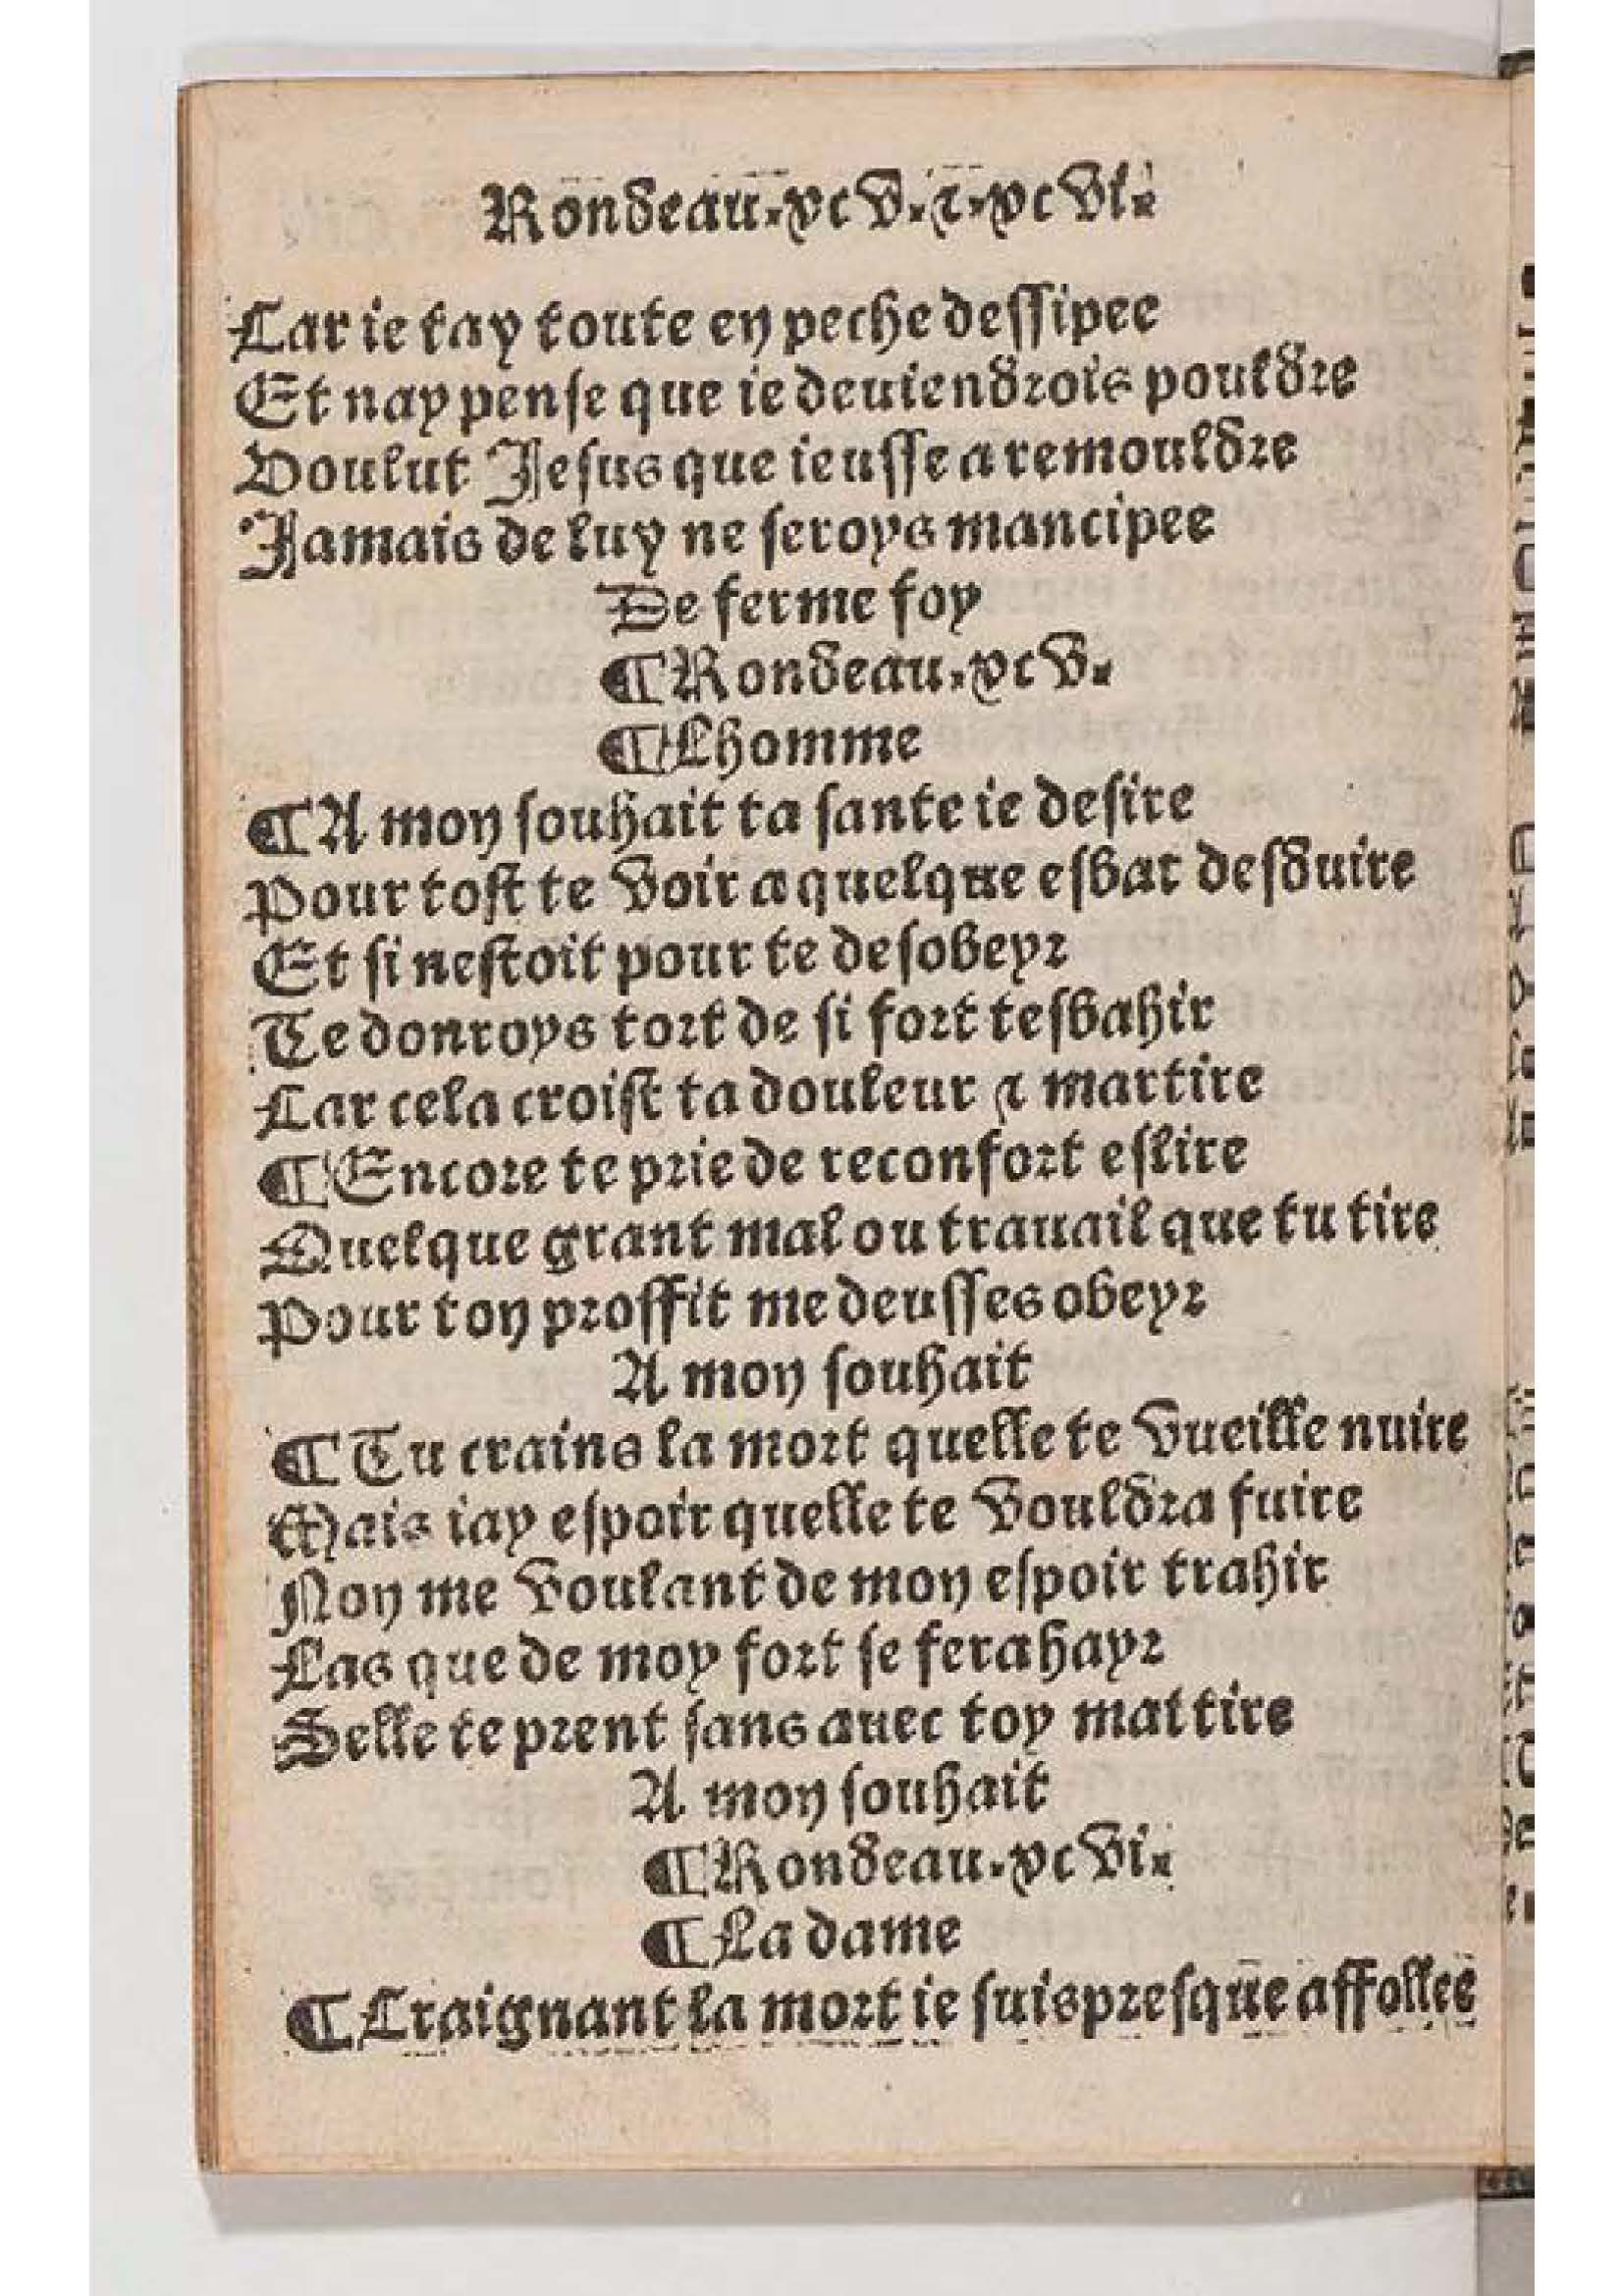 Rondeau.xcv.⁊.xcvi.
Car ie lay toute en peche dessipee
Et nay pense que ie deuiendrois pouldre
Voulut Jesus que ieusse a remouldre
Jamais de luy ne seroys mancipee
De ferme foy
¶Rondeau.xcv.
¶Lhomme
¶A mon souhait ta sante ie desire
Pour tost te voir a quelque esbat desduire
Et si nestoit pour te desobeyr
Te donroys tort de si fort tesbahir
Car cela croist ta douleur ⁊ martire
¶Encore te prie de reconfort eslire
Quelque grant mal ou trauail que tu tire
Pour ton proffit me deusses obeyr
A mon souhait
¶Tu crains la mort quelle te vueille nuire
Mais iay espoir quelle te vouldra fuire
Non me voulant de mon espoir trahir
Las que de moy fort se fera hayr
Selle te prent sans auec toy mattire
A mon souhait
¶Rondeau.xcvi.
¶La dame
¶Craignant la mort ie suis presque affollee